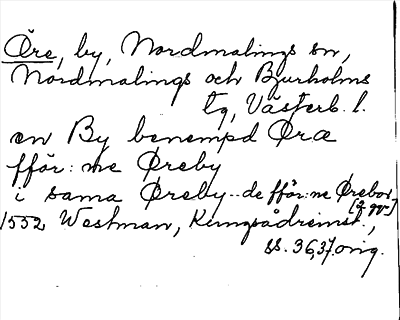 Öre, by, Nordmalings sn,
Nordmalings och Bjurholms
tg, Västerb. l.
en By benempd Øræ
fför: ne Øreby
i sama Øreby--de fför: ne Ørebor
[2 gr]
1552 Westman, Kungsådreinst.,
ss. 36,37. orig.